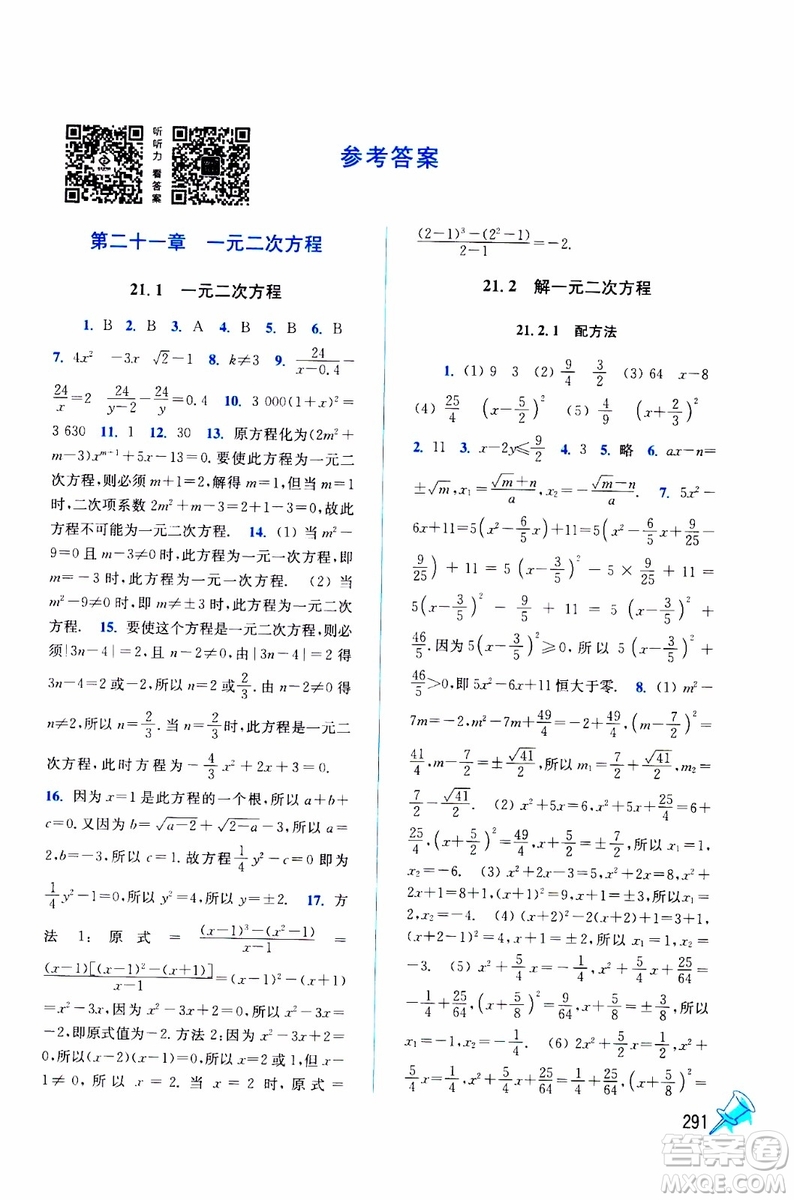 听听力 看答案
参考答案
第二十一章 一元二次方程
21.1 一元二次方程
1. B 2. B 3. A 4. B 5. B 6. B
7. 4x² -3x √2-1 8. k≠3 9. 24/(x-0.4)-
24/x=2 24/(y-2)-24/y=0.4 10. 3 000(1+x)²=
3 630 11. 1 12. 30 13. 原方程化为(2m²+
m-3)x^(m+1)+5x-13=0. 要使此方程为一元二
次方程,则必须 m+1=2,解得 m=1. 但当 m=1
时,二次项系数 2m²+m-3=2+1-3=0,故此
方程不可能为一元二次方程. 14. (1) 当 m²-
9=0 且 m-3≠0 时,此方程为一元一次方程,即
m=-3 时,此方程为一元一次方程. (2) 当
m²-9≠0,即 m≠±3 时,此方程为一元二次方
程. 15. 要使这个方程是一元二次方程,则必
须|3n-4|=2 且 n-2≠0. 由|3n-4|=2 得
3n-4=2 或-2,所以 n=2 或 2/3. 由 n-2≠0 得
n≠2,所以 n=2/3. 当 n=2/3 时,此方程为一元二
次方程,此时方程为-4/3x²+2x+3=0.
16. 因为 x=1 是此方程的一个根,所以 a+b+
c=0. 又因为 b=√(a-2)+√(2-a)-3,所以 a=
2,b=-3,所以 c=1. 故方程 1/4y²-c=0 即为
1/4y²-1=0,所以 y²=4,y=±2. 17. 方
法 1:原式=((x-1)³-(x²-1))/(x-1)=
(x-1)[(x-1)²-(x+1)]/(x-1)=(x-1)²-(x+1)=
x²-3x. 因为 x²-3x+2=0,所以 x²-3x=
-2,即原式值为-2. 方法 2:由 x²-3x+2=
0,所以(x-1)(x-2)=0,所以 x-1=0 或 x-
2=0. 又 x-1≠0,所以 x=2. 当 x=2 时,原式=
((2-1)³-(2²-1))/(2-1)=-2.
21.2 解一元二次方程
21.2.1 配方法
1. (1) 9 3 (2) 9/4 3/2 (3) 64 x-8
(4) 25/4 (x-5/2)² (5) 4/9 (x+2/3)²
2. 11 3. x-2y≤9/2 4. 3 5. 略 6. ax-n=
±√m,x₁=(√m+n)/a,x₂=-(√m-n)/a. 7. 5x²-
6x+11=5(x²-6/5x)+11=5(x²-6/5x+
9/25)+11=5(x-3/5)²-5×9/25+11=
5(x-3/5)²-9/5+11=5(x-3/5)²+
46/5. 因为 5(x-3/5)²≥0,所以 5(x-3/5)²+
46/5>0,即 5x²-6x+11 恒大于零. 8. (1) m²-
7m=-2,m²-7m+49/4=-2+49/4,(m-7/2)²=
41/4,m-7/2=±√41/2,所以 m₁=7/2+√41/2,m₂=
7/2-√41/2. (2) x²+5x=6,x²+5x+25/4=6+
25/4,(x+5/2)²=49/4,x+5/2=±7/2,所以 x₁=1,
x₂=-6. (3) x²+2x-3=5,x²+2x=8,x²+
2x+1=8+1,(x+1)²=9,x+1=±3,所以 x₁=
2,x₂=-4. (4) x²+2x=3,x²+2x+1=3+1,
(x+1)²=4,x+1=±2,所以 x₁=1,x₂=
-3. (5) x²+5/4x=-1/4,x²+5/4x+25/64=
-1/4+25/64,(x+5/8)²=9/64,x+5/8=±3/8,所以
x₁=-1,x₂=-1/4. (6) 4x²-5x-6=0,x²-
5/4x-6/4=0,x²-5/4x=6/4,x²-5/4x+25/64=
291
答案圈
MXQE.COM